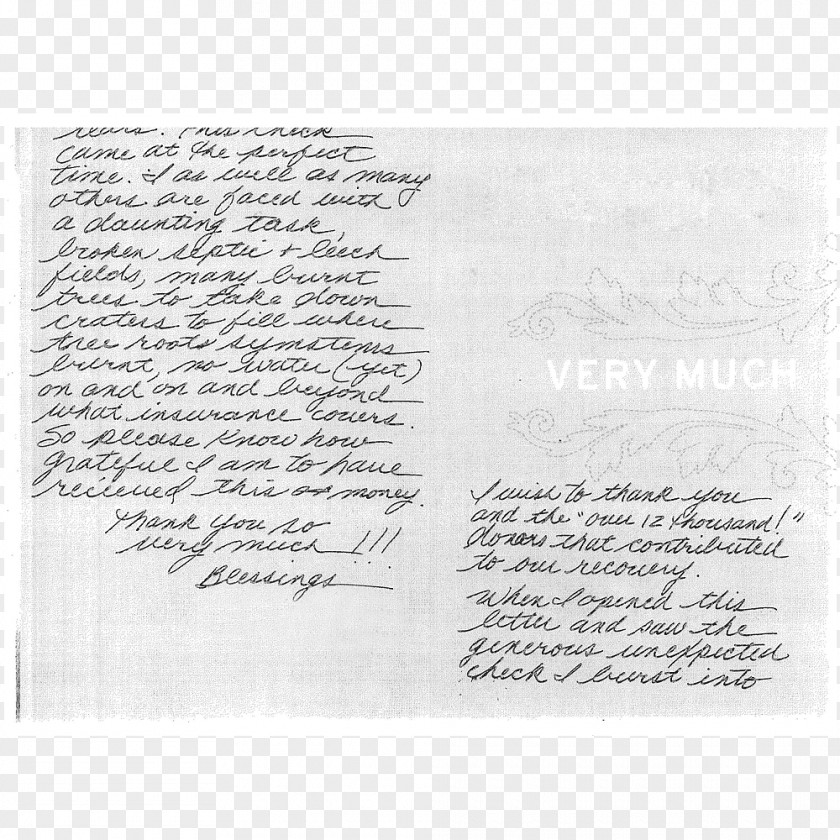 VERY MUCH
I wish to thank you
and the "over 12 thousand!"
donors that contributed
to our recovery.
When I opened this
letter and saw the
generous unexpected
check I burst into
tears. This check
came at the perfect
time. I as well as many
others are faced with
a daunting task,
broken septic + leech
fields, many burnt
trees to take down
craters to fill where
tree roots symstems
burnt, no water (yet)
on and on and beyond
what insurance covers.
So please know how
grateful I am to have
recieved this money.
Thank you so
very much!!!
Blessings